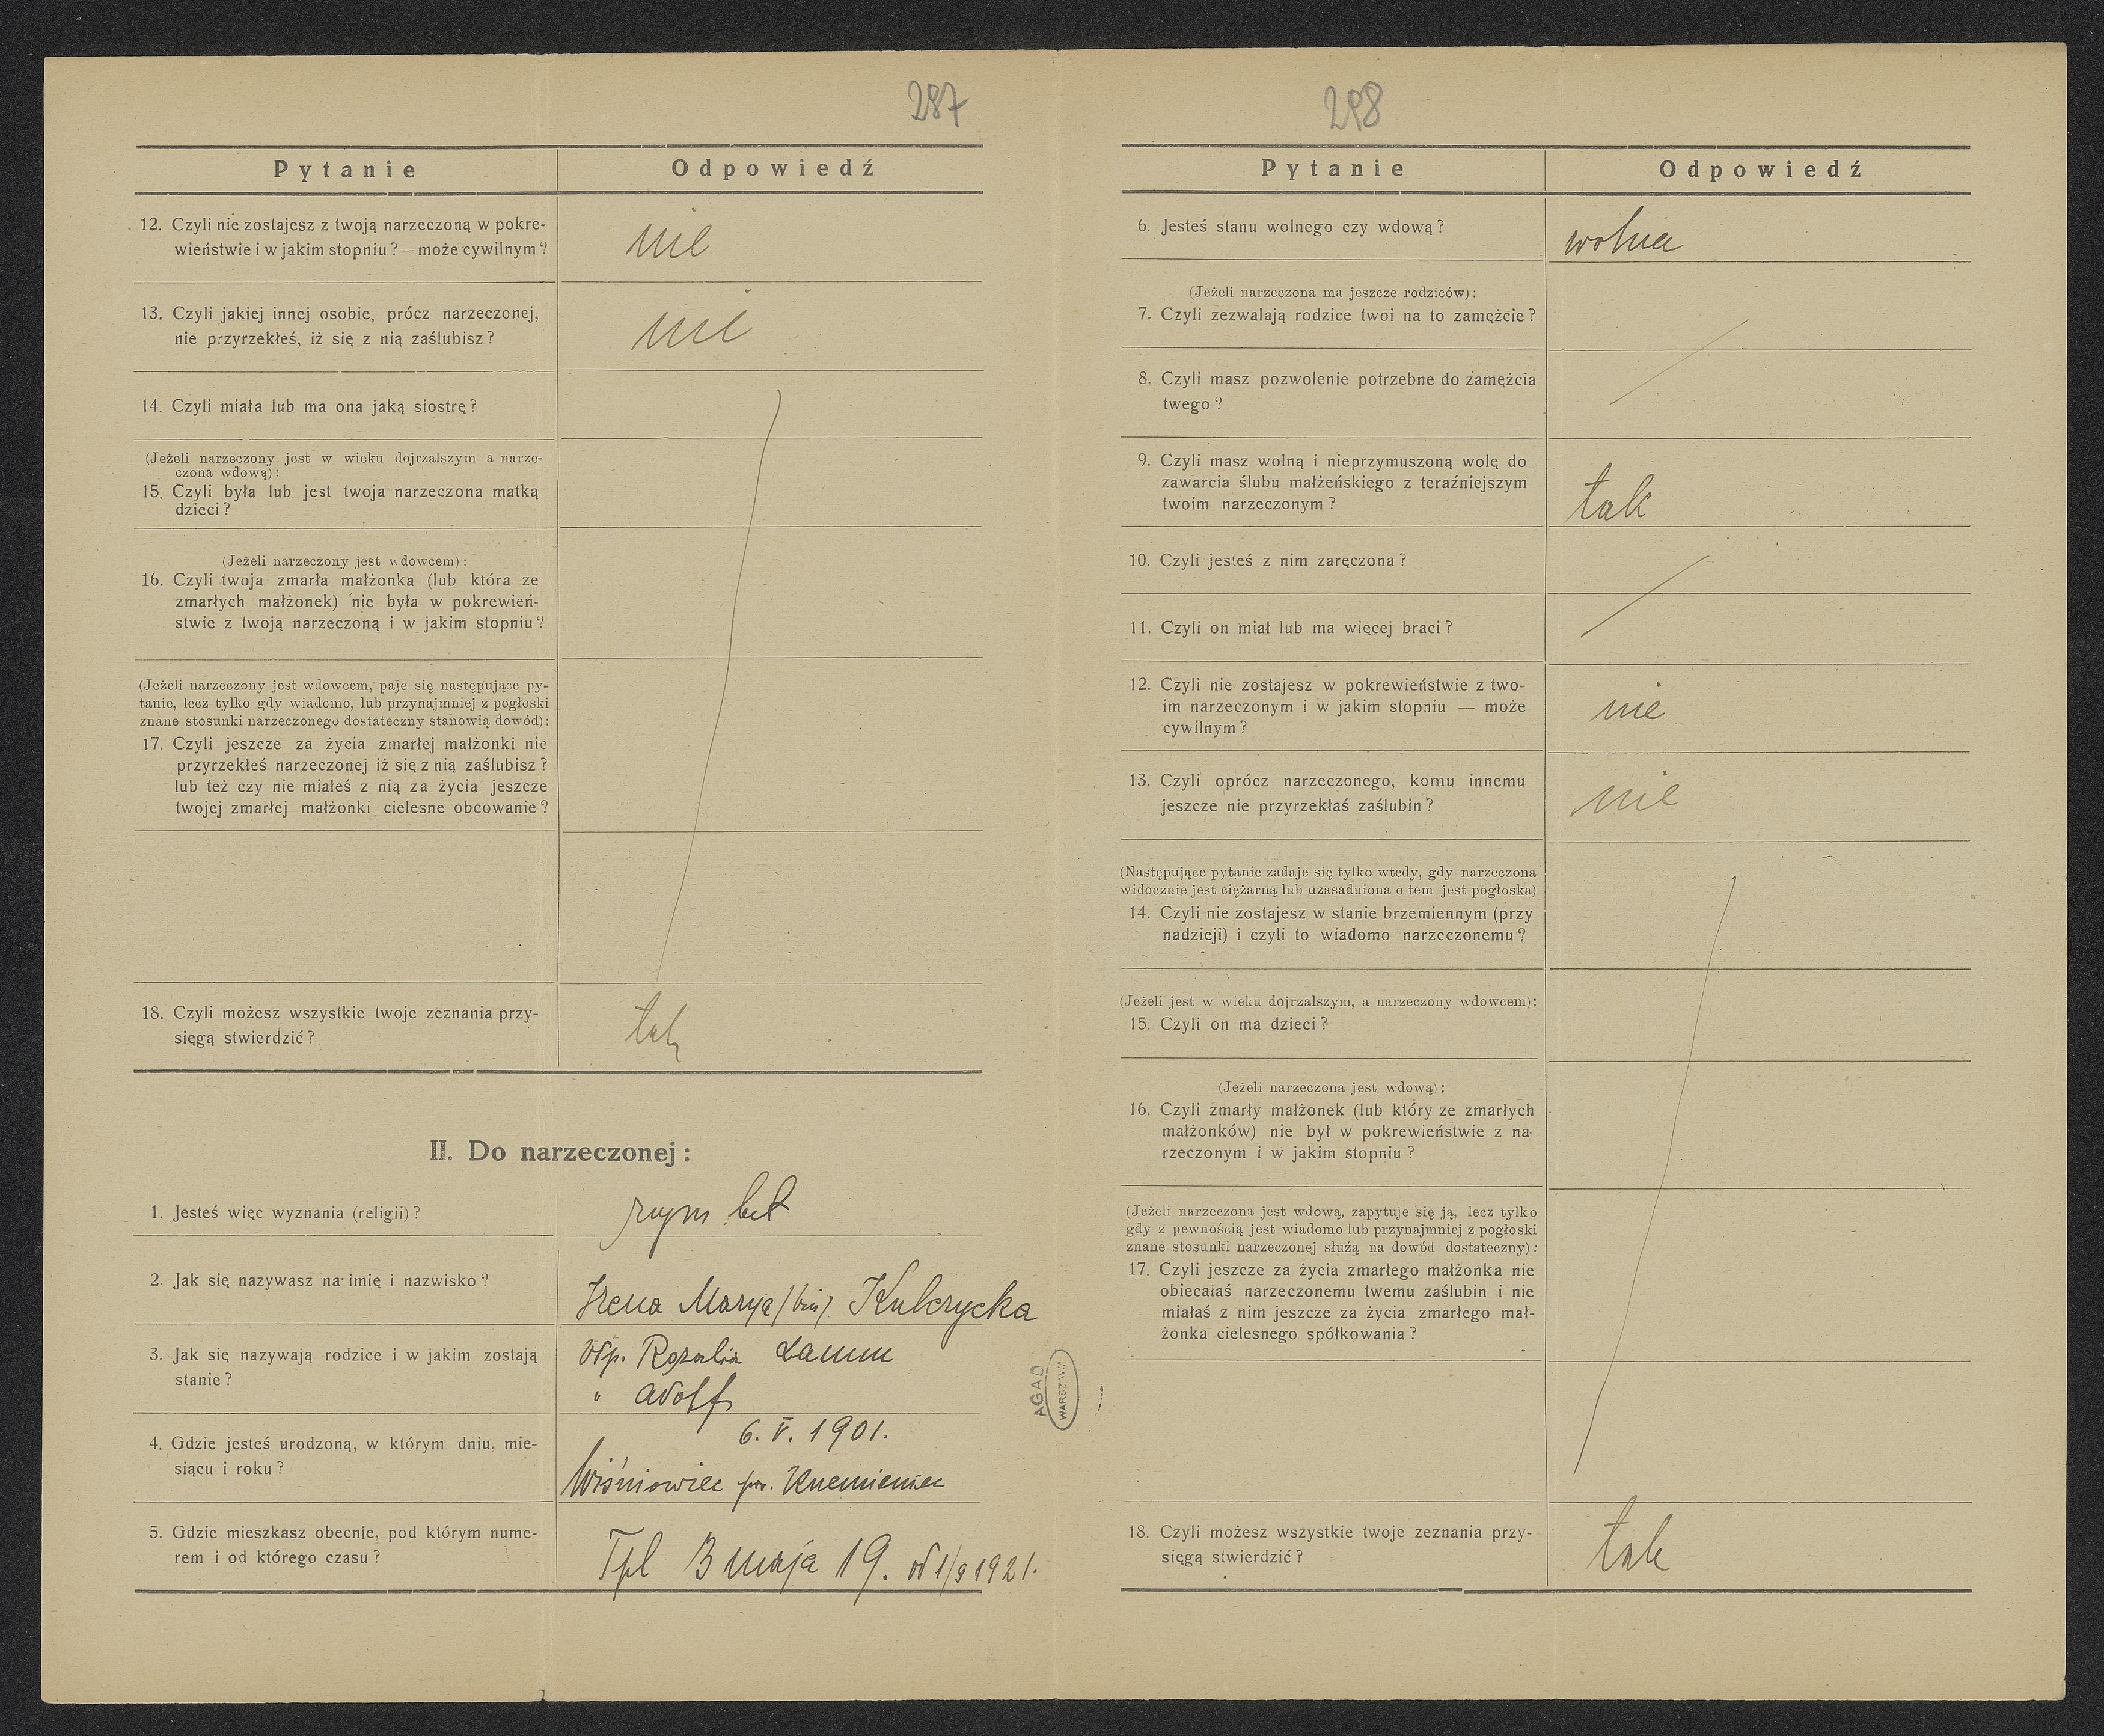 287
Pytanie Odpowiedź
12. Czyli nie zostajesz z twoją narzeczoną w pokre-
wieństwie i w jakim stopniu?—może cywilnym?
nie
13. Czyli jakiej innej osobie, prócz narzeczonej,
nie przyrzekłeś, iż się z nią zaślubisz?
nie
14. Czyli miała lub ma ona jaką siostrę?
(Jeżeli narzeczony jest w wieku dojrzalszym a narze-
czona wdową):
15. Czyli była lub jest twoja narzeczona matką
dzieci?
(Jeżeli narzeczony jest wdowcem):
16. Czyli twoja zmarła małżonka (lub która ze
zmarłych małżonek) nie była w pokrewień-
stwie z twoją narzeczoną i w jakim stopniu?
(Jeżeli narzeczony jest wdowcem, paje się następujące py-
tanie, lecz tylko gdy wiadomo, lub przynajmniej z pogłoski
znane stosunki narzeczonego dostateczny stanowią dowód):
17. Czyli jeszcze za życia zmarłej małżonki nie
przyrzekłeś narzeczonej iż się z nią zaślubisz?
lub też czy nie miałeś z nią za życia jeszcze
twojej zmarłej małżonki cielesne obcowanie?
18. Czyli możesz wszystkie twoje zeznania przy-
sięgą stwierdzić?
tak
II. Do narzeczonej:
1. Jesteś więc wyznania (religii)?
rzym
2. Jak się nazywasz na imię i nazwisko?
Irena Marya Kulczycka
3. Jak się nazywają rodzice i w jakim zostają
stanie?
Rozalia Lamm
" Adolf
4. Gdzie jesteś urodzoną, w którym dniu, mie-
siącu i roku?
6. V. 1901.
Wiśniowiec pow. Krzemieniec
5. Gdzie mieszkasz obecnie, pod którym nume-
rem i od którego czasu?
Tpl 3 maja 19. od 1/9 1921.
AGAD
WARSZAWA
298
Pytanie Odpowiedź
6. Jesteś stanu wolnego czy wdową?
wolna
(Jeżeli narzeczona ma jeszcze rodziców):
7. Czyli zezwalają rodzice twoi na to zamężcie?
8. Czyli masz pozwolenie potrzebne do zamężcia
twego?
9. Czyli masz wolną i nieprzymuszoną wolę do
zawarcia ślubu małżeńskiego z teraźniejszym
twoim narzeczonym?
tak
10. Czyli jesteś z nim zaręczona?
11. Czyli on miał lub ma więcej braci?
12. Czyli nie zostajesz w pokrewieństwie z two-
im narzeczonym i w jakim stopniu — może
cywilnym?
nie
13. Czyli oprócz narzeczonego, komu innemu
jeszcze nie przyrzekłaś zaślubin?
nie
(Następujące pytanie zadaje się tylko wtedy, gdy narzeczona
widocznie jest ciężarną lub uzasadniona o tem jest pogłoska)
14. Czyli nie zostajesz w stanie brzemiennym (przy
nadzieji) i czyli to wiadomo narzeczonemu?
(Jeżeli jest w wieku dojrzalszym, a narzeczony wdowcem):
15. Czyli on ma dzieci?
(Jeżeli narzeczona jest wdową):
16. Czyli zmarły małżonek (lub który ze zmarłych
małżonków) nie był w pokrewieństwie z na-
rzeczonym i w jakim stopniu?
(Jeżeli narzeczona jest wdową, zapytuje się ją, lecz tylko
gdy z pewnością jest wiadomo lub przynajmniej z pogłoski
znane stosunki narzeczonej służą na dowód dostateczny):
17. Czyli jeszcze za życia zmarłego małżonka nie
obiecałaś narzeczonemu twemu zaślubin i nie
miałaś z nim jeszcze za życia zmarłego mał-
żonka cielesnego spółkowania?
18. Czyli możesz wszystkie twoje zeznania przy-
sięgą stwierdzić?
tak